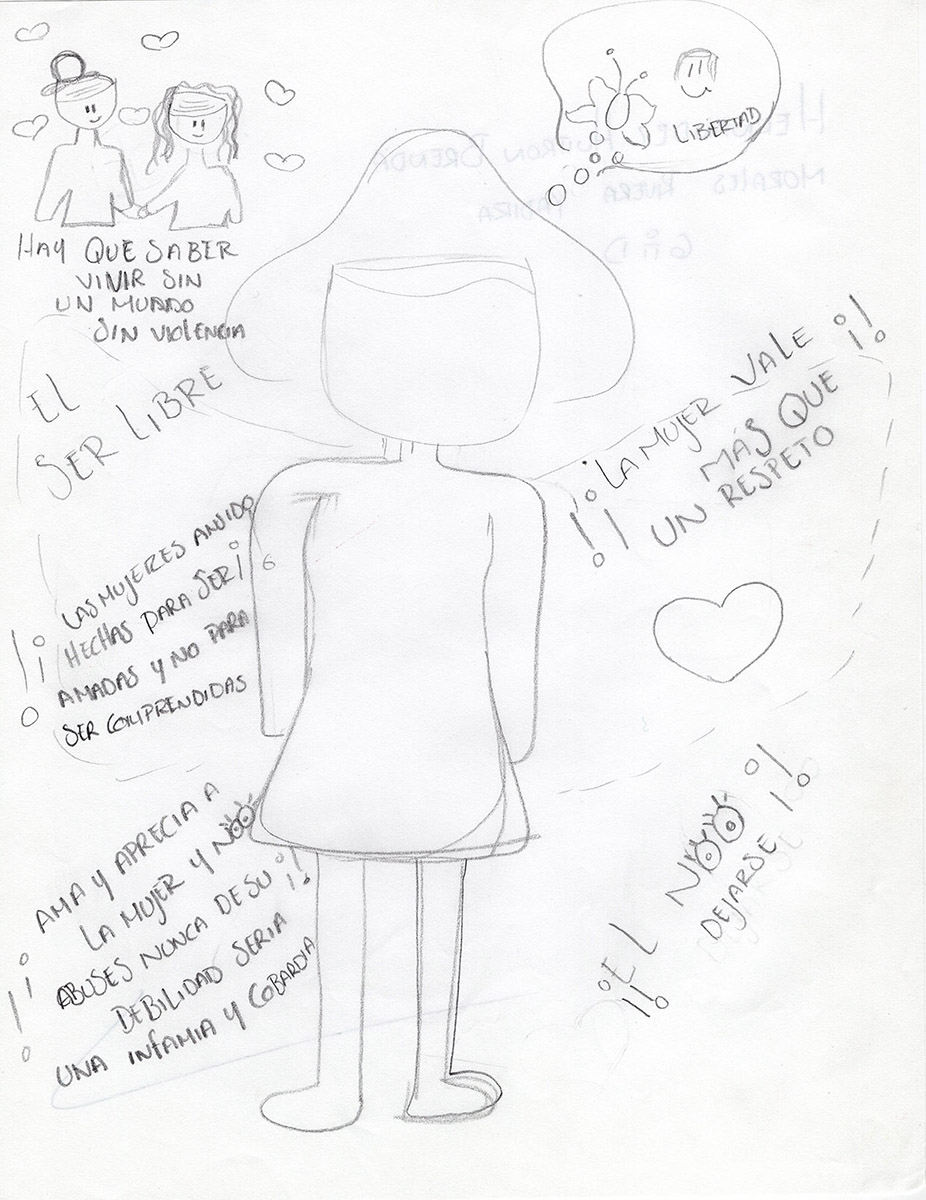 LIBERTAD
HAY QUE SABER
VIVIR SIN
UN MUNDO
SIN VIOLENCIA
EL
SER LIBRE
¡LA MUJER VALE ¡!
MÁS QUE
UN RESPETO
!¡
LAS MUJERES ANSIDO
HECHAS PARA SER¡
AMADAS Y NO PARA
SER COMPRENDIDAS
AMA Y APRECIA A
LA MUJER Y NOO
ABUSES NUNCA DE SU ¡!
DEBILIDAD SERIA
UNA INFAMIA Y COBARDIA
¡¡EL NOO
DEJARSE !!
MORALES RIVERA YADIRA